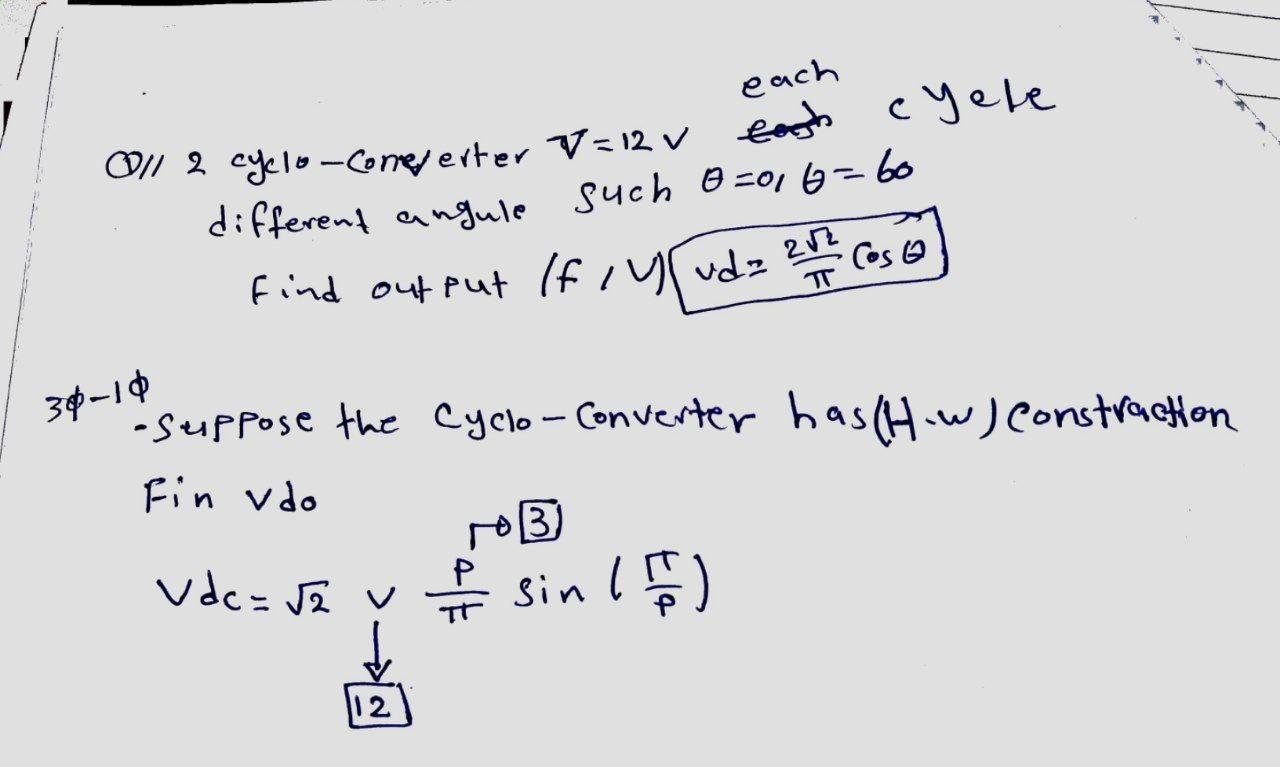 ①// 2 cyclo-Converter V=12 V each cycle
different angule such θ=0, θ=60
Find output (f, V) Vd = 2√2/π Cos θ
3φ-1φ
- Suppose the Cyclo-Converter has (H.w) constraction
Fin vdo
3
Vdc = √2 V P/π sin (π/P)
12